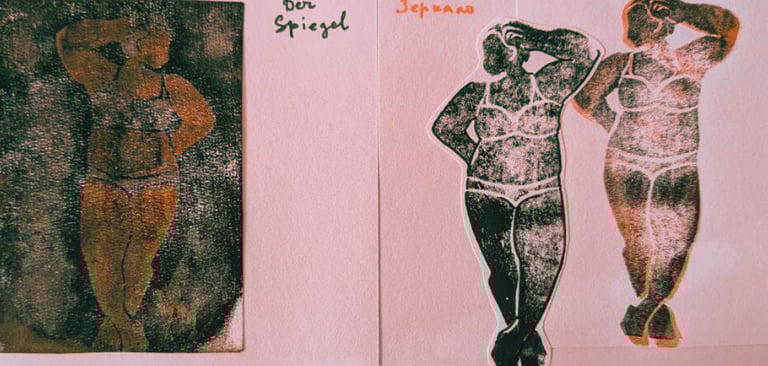 Der
Spiegel
Зеркало